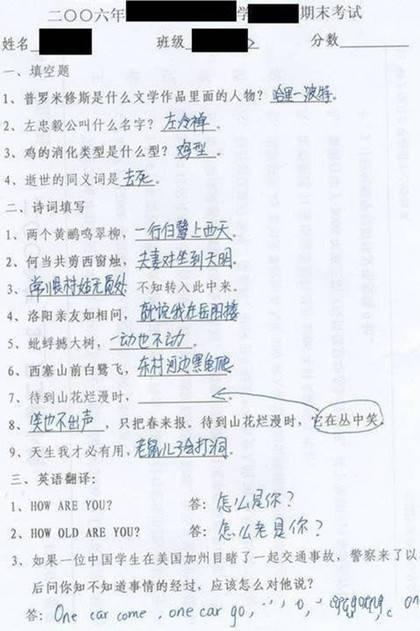 二〇〇六年 学 期末考试
姓名 班级 分数
一、填空题
1、普罗米修斯是什么文学作品里面的人物？哈里-波特。
2、左忠毅公叫什么名字？左冷禅。
3、鸡的消化类型是什么型？鸡型。
4、逝世的同义词是去死。
二、诗词填写
1、两个黄鹂鸣翠柳，一行白鹭上西天。
2、何当共剪西窗烛，夫妻对坐到天明。
3、常恨村姑无觅处 不知转入此中来。
4、洛阳亲友如相问，就说我在岳阳楼
5、蚍蜉撼大树，一动也不动。
6、西塞山前白鹭飞，东村河边黑龟爬
7、待到山花烂漫时，
8、笑也不出声，只把春来报。待到山花烂漫时，它在丛中笑。
9、天生我才必有用，老鼠儿子会打洞。
三、英语翻译：
1、HOW ARE YOU? 答：怎么是你？
2、HOW OLD ARE YOU? 答：怎么老是你？
3、如果一位中国学生在美国加州目睹了一起交通事故，警察来了以
后问你知不知道事情的经过，应该怎么对他说？
答：One car come, one car go,